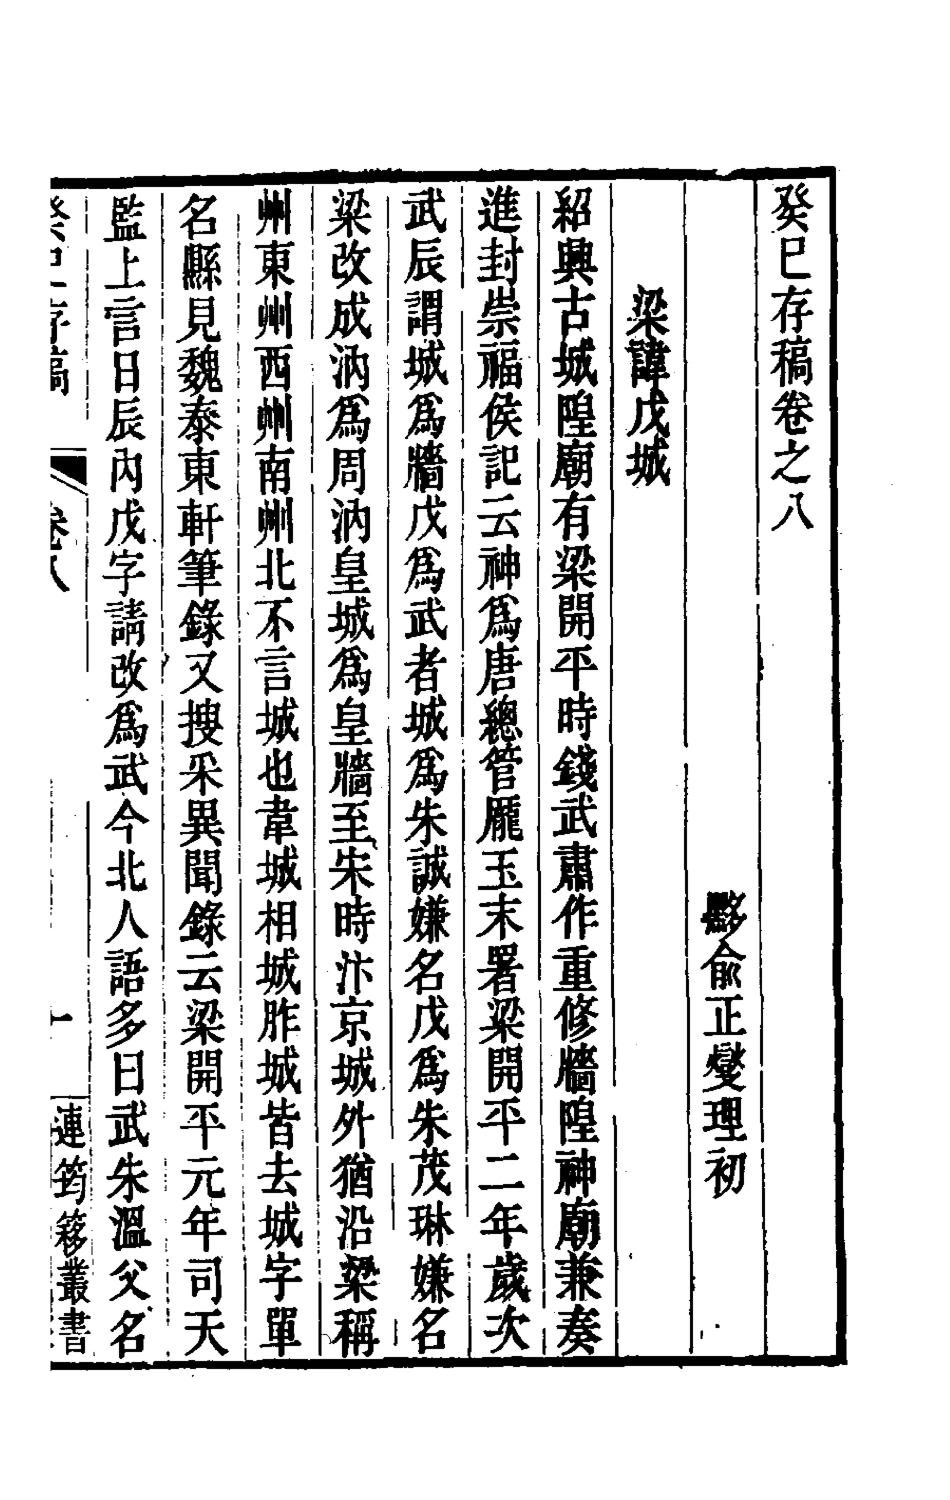 癸巳存稿卷之八
黟俞正燮理初
梁諱戊城
紹興古城隍廟有梁開平時錢武肅作重修牆隍神廟兼奏
進封崇福侯記云神爲唐總管龐玉末署梁開平二年歲次
武辰謂城爲牆戊爲武者城爲朱誠嫌名戊爲朱茂琳嫌名
梁改成汭爲周汭皇城爲皇牆至宋時汴京城外猶沿梁稱
州東州西州南州北不言城也韋城相城胙城皆去城字單
名縣見魏泰東軒筆錄又搜采異聞錄云梁開平元年司天
監上言日辰內戊字請改爲武今北人語多曰武朱溫父名
癸巳存稿 卷八 一 連筠簃叢書